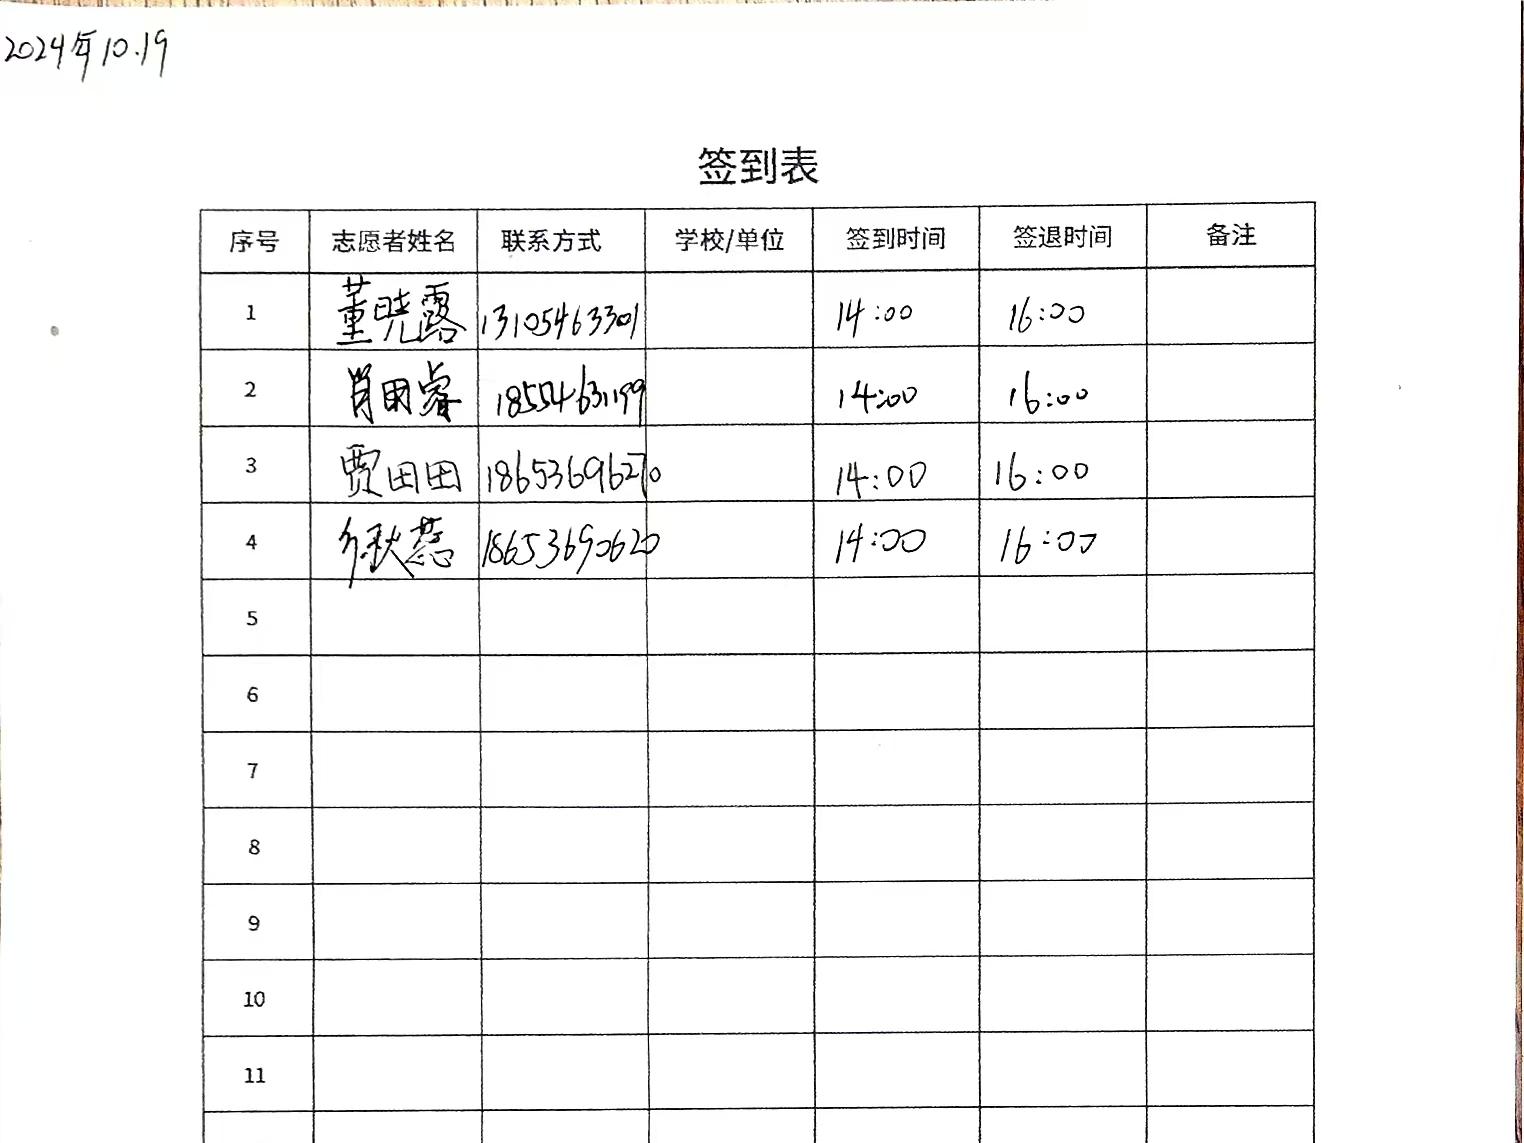 2024年10.19
签到表
序号 志愿者姓名 联系方式 学校/单位 签到时间 签退时间 备注
1 董晓露 13105463301 14:00 16:00
2 肖田睿 18554631199 14:00 16:00
3 贾田田 18653696270 14:00 16:00
4 秋蕊 18653690620 14:00 16:00
5
6
7
8
9
10
11